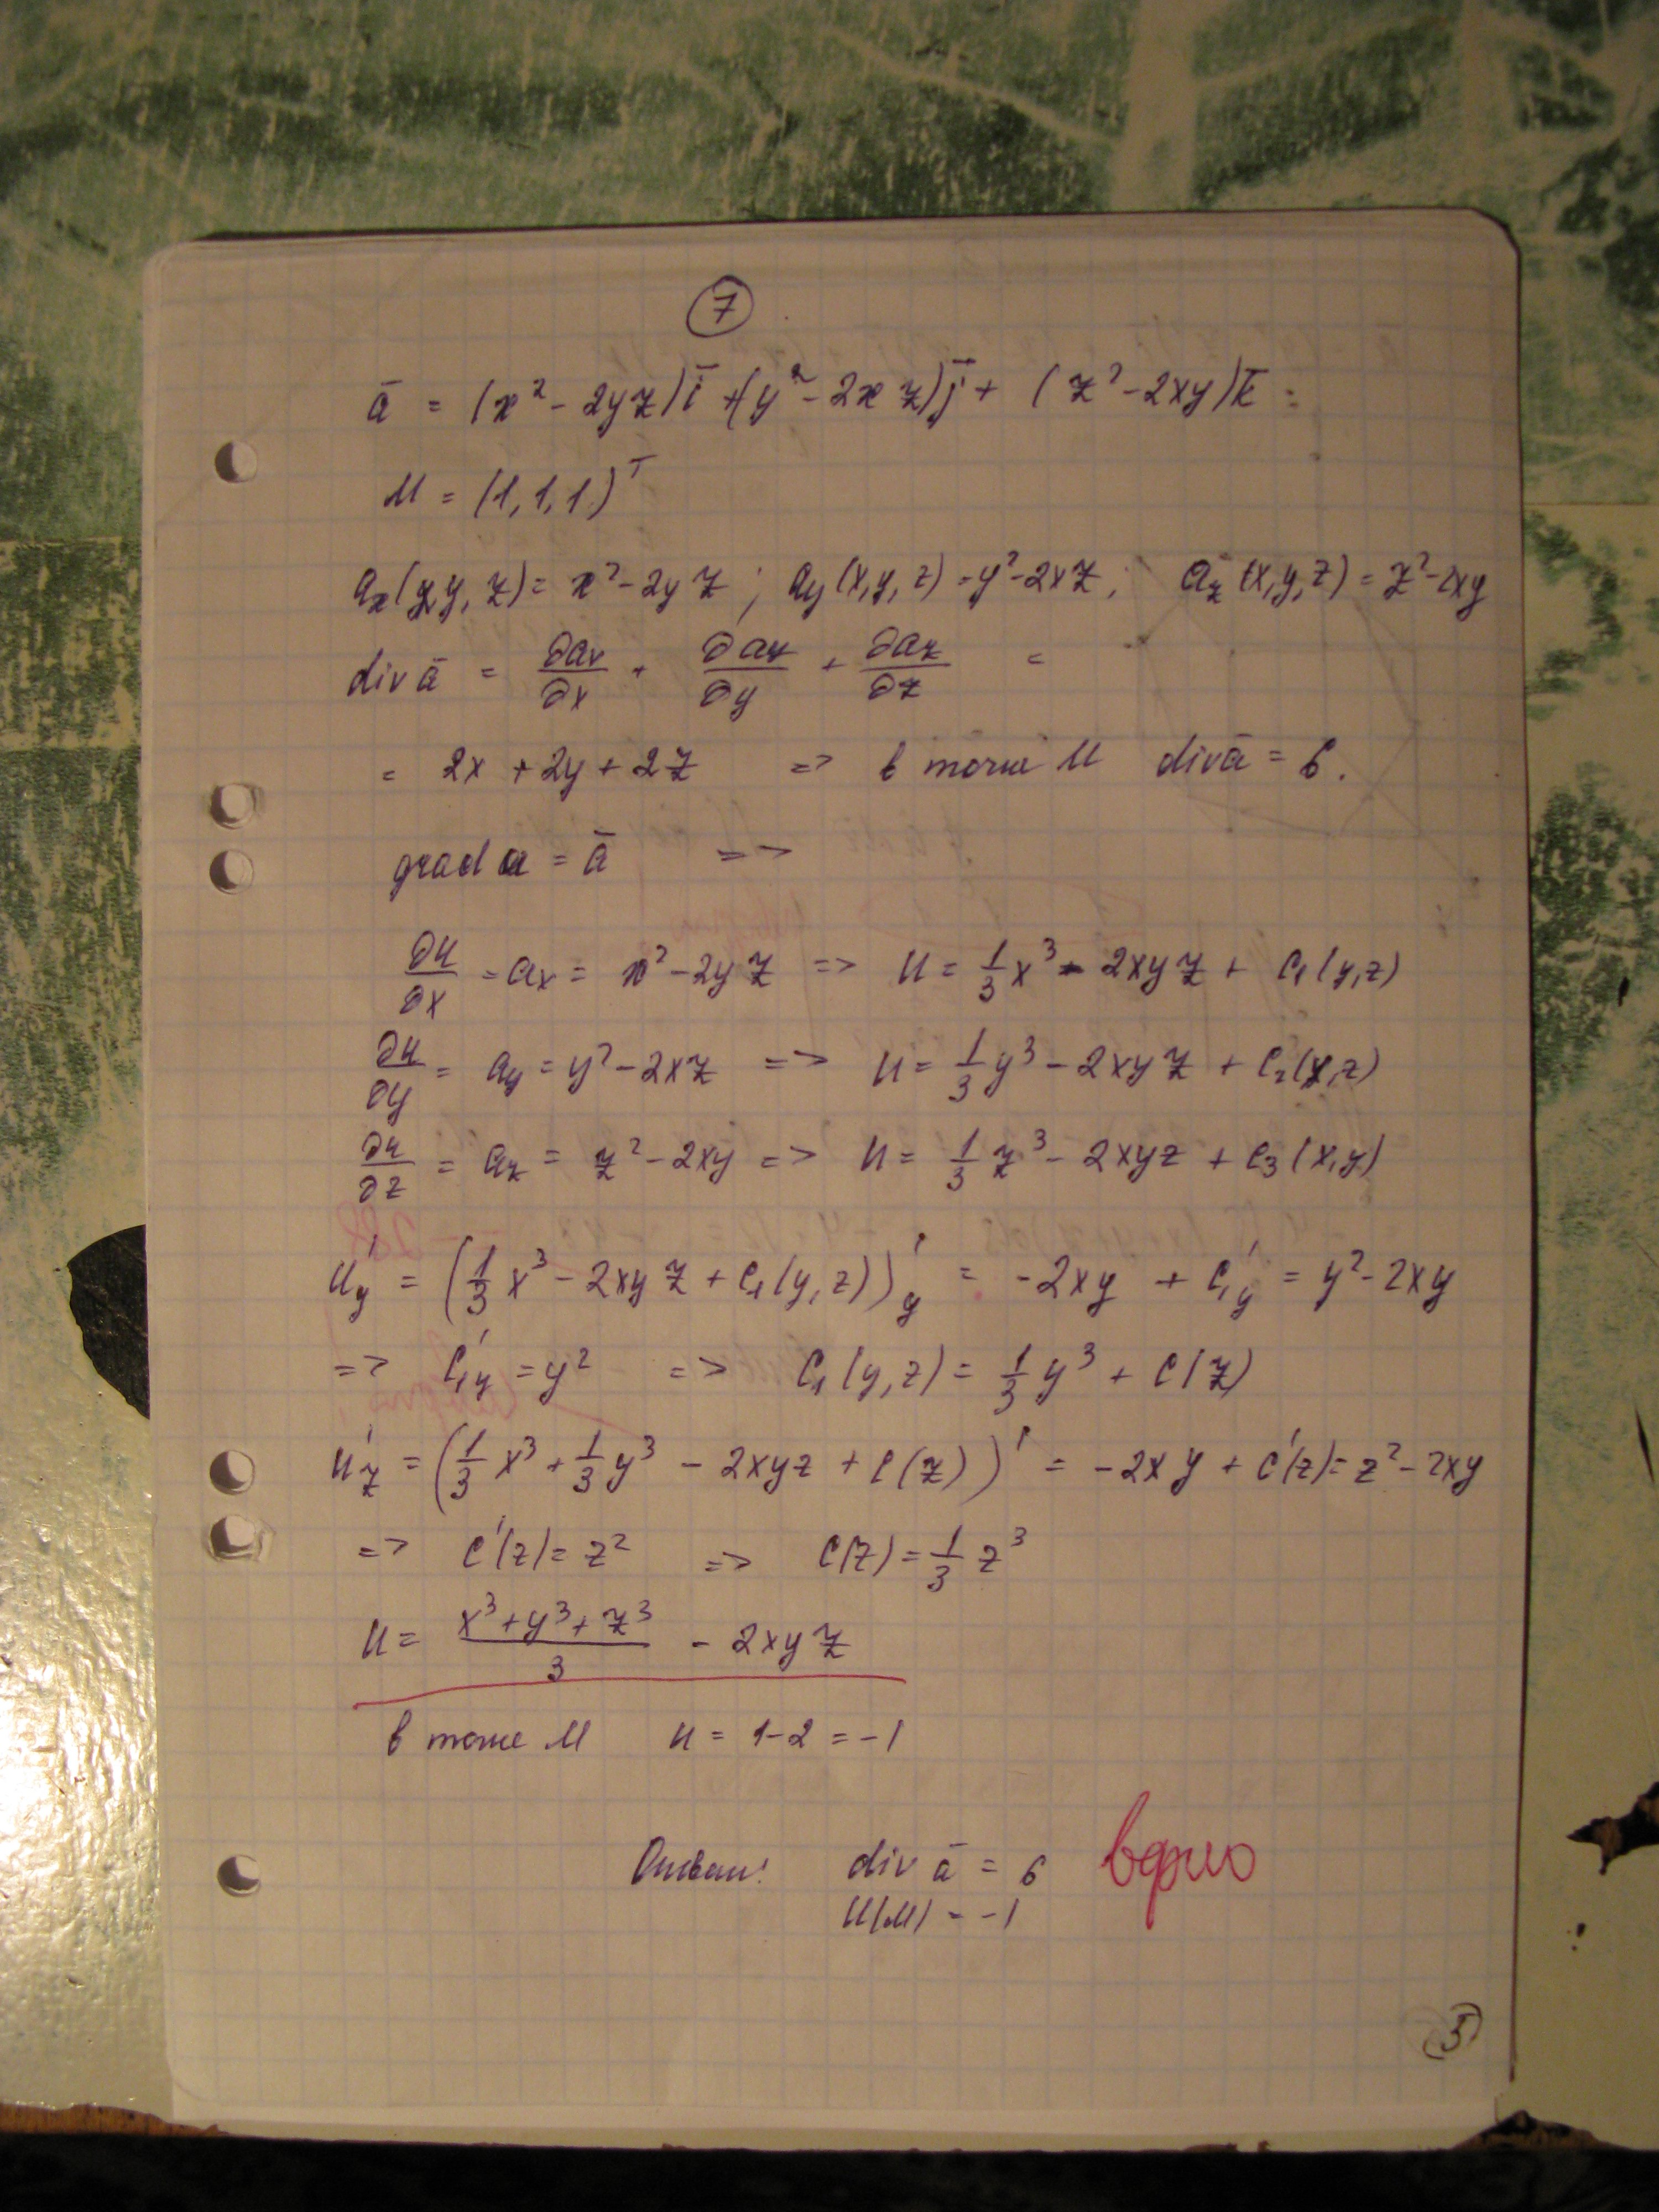 7
ā = (x² - 2yz)ī + (y² - 2xz)j̄ + (z² - 2xy)k̄ =
M = (1, 1, 1)ᵀ
aₓ(x, y, z) = x² - 2yz ; a_y(x, y, z) = y² - 2xz ; a_z(x, y, z) = z² - 2xy
div ā = ∂aₓ/∂x + ∂a_y/∂y + ∂a_z/∂z =
= 2x + 2y + 2z => в точке M div ā = 6.
grad u = ā =>
∂u/∂x = aₓ = x² - 2yz => u = 1/3 x³ - 2xyz + C₁(y,z)
∂u/∂y = a_y = y² - 2xz => u = 1/3 y³ - 2xyz + C₂(x,z)
∂u/∂z = a_z = z² - 2xy => u = 1/3 z³ - 2xyz + C₃(x,y)
u'_y = (1/3 x³ - 2xyz + C₁(y, z))'_y = -2xy + C₁'_y = y² - 2xy
=> C₁'_y = y² => C₁(y,z) = 1/3 y³ + C(z)
u'_z = (1/3 x³ + 1/3 y³ - 2xyz + C(z))' = -2xy + C'(z) = z² - 2xy
=> C'(z) = z² => C(z) = 1/3 z³
u = (x³ + y³ + z³)/3 - 2xyz
в точке M u = 1-2 = -1
Ответ: div ā = 6 верно
U(M) = -1
5